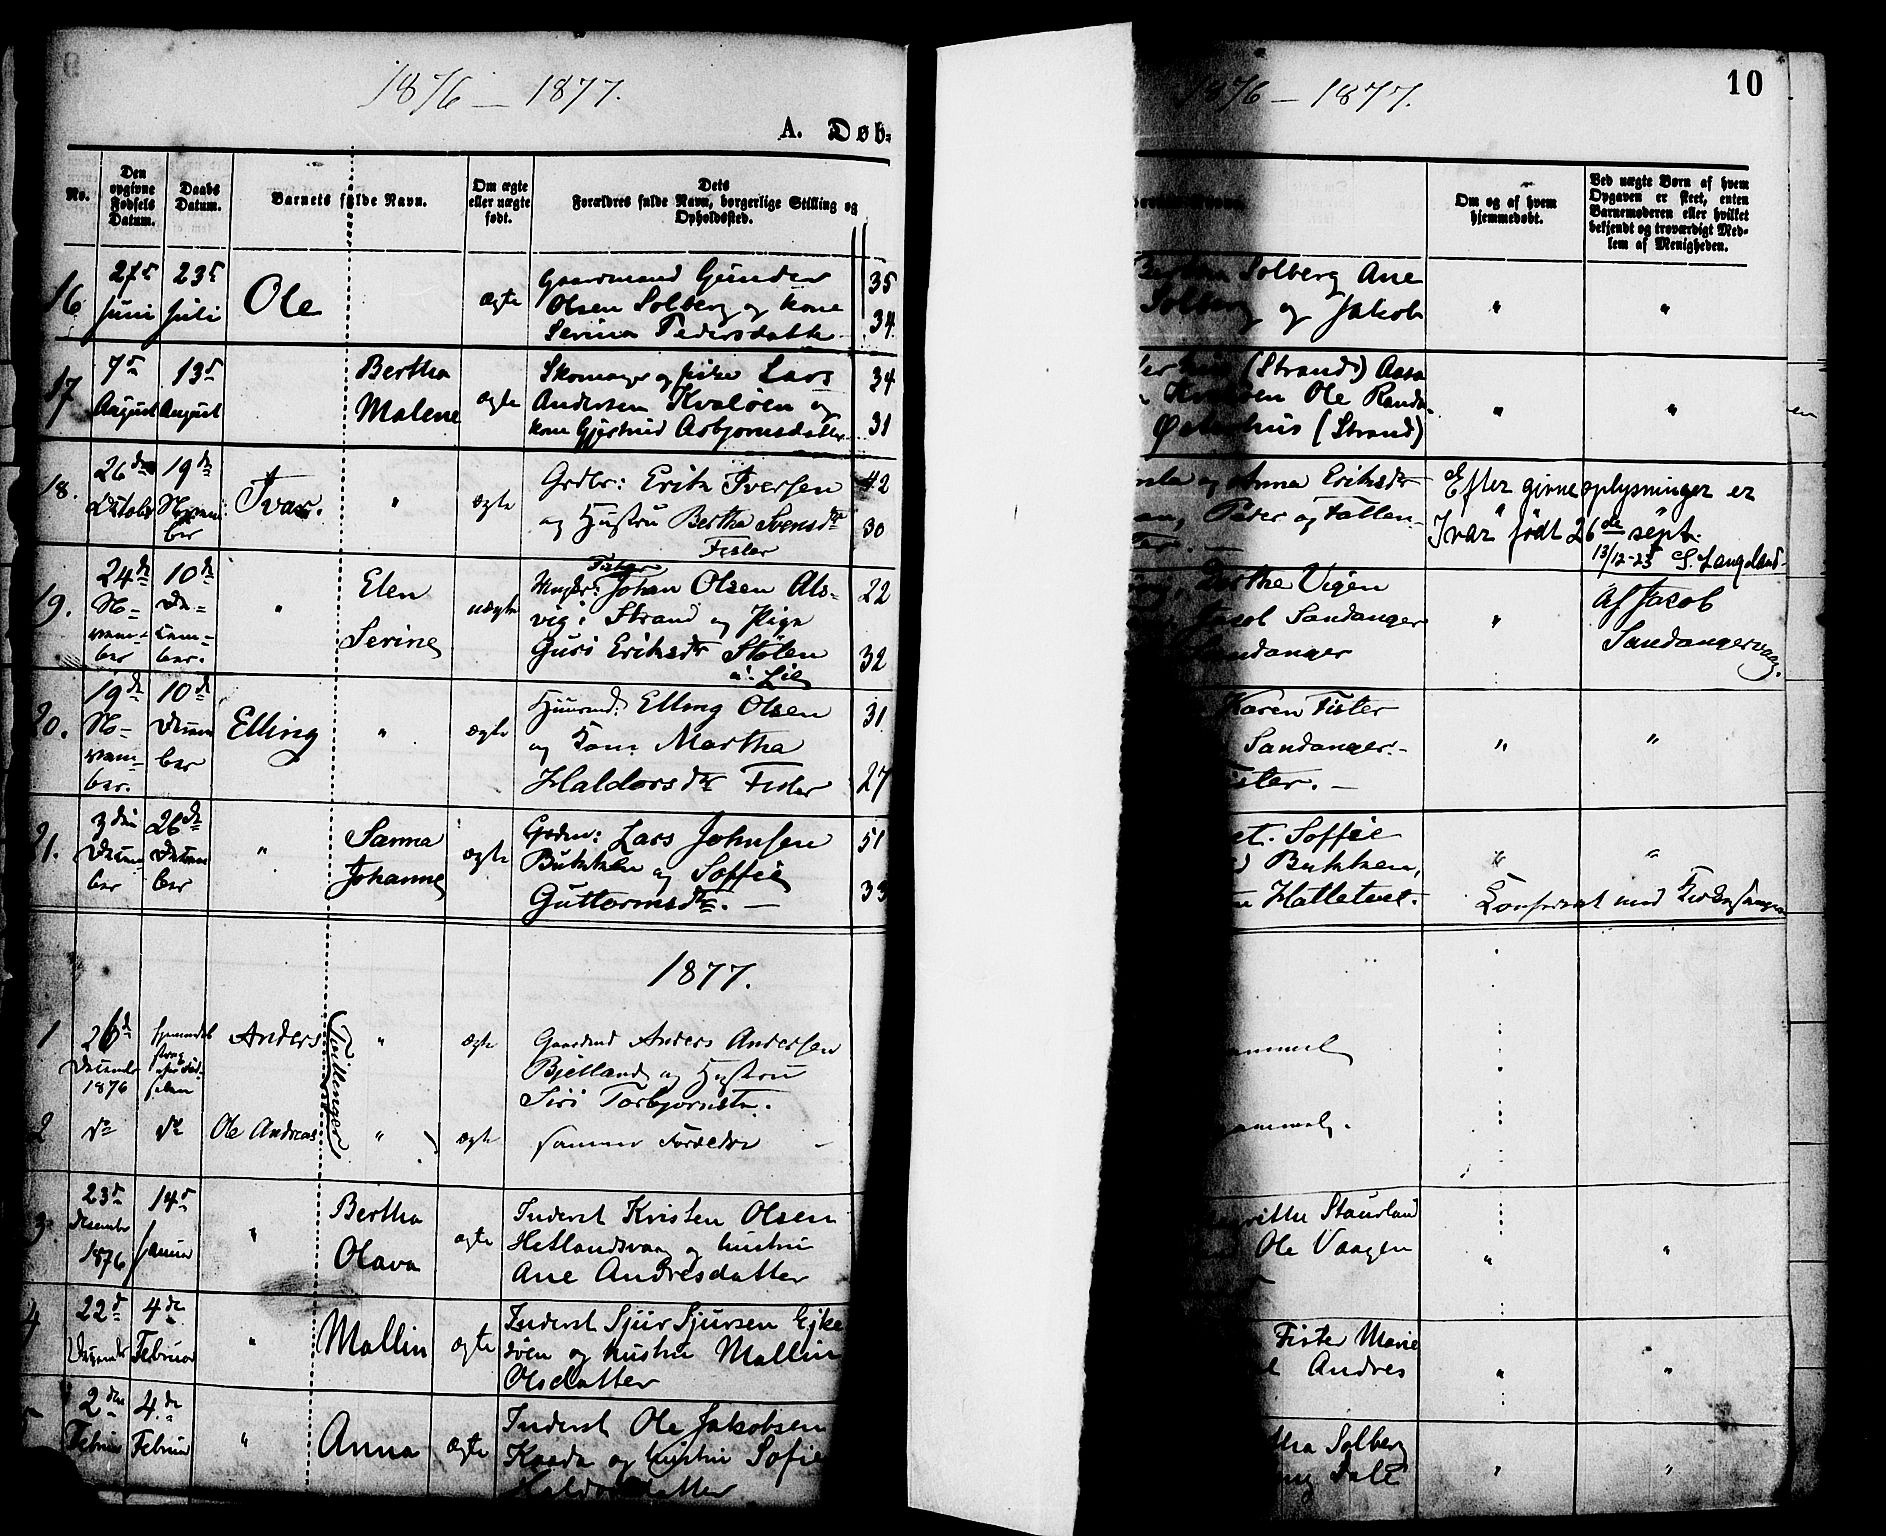 1876 — 1877.
A. Døb-
No.
Den opgivne Fødsels Datum.
Daabs Datum.
Barnets fulde Navn.
Om ægte eller uægte født.
Dets
Forældres fulde Navn, borgerlige Stilling og
Opholdsted.
16
27de Juni
23de Juli
Ole
ægte
Gaardmand Gunder
Olsen Solberg og kone
Serina Pedersdatter
35
34
17
7de August
13de August
Bertha
Malene
ægte
Skomager og fisker Lars
Andersen Kvaløen og
kone Gjertrud Asbjørnsdatter
34
31
18.
26de Octobr
19de Novem
ber
Ivar.
"
ægte
Grdbr: Erik Iversen
og Hustru Bertha Svensdtr
Fister
42
30
19.
24de No-
vem-
ber
10de De-
cem-
ber.
"
Elen
Serine
uægte
Ungkr: Johan Olsen Als-
vig i Strand og Pige
Guri Eriksdtr Stølen
i Lie
22
32
20.
19de No-
vem-
ber.
10de Decem
ber
Elling
"
ægte
Elling Olsen
og Kone Martha
Haldorsdtr Fister
31
27
21.
3die Decem
ber
26de Decem
ber
"
Sanna
Johanne
ægte
Grdm: Lars Johnsen
Bukken og Soffie
Guttormsdtr. —
51
33
1877.
1
26de
Decembr
1876
Anders
Tvillinger
"
ægte
Gaardmd Anders Andersen
Bjelland og Hustru
Siri Torbjørnsdtr.
2
do
do
Ole Andreas
"
ægte
samme Forældre —
3
23de
Desembr
1876
14de
Januar
"
Bertha
Olava
ægte
Inderst Kristen Olsen
Hetlandsvaag og hustru
Ane Andresdatter
4
22de
Desember
4de
Februar
"
Mallin
ægte
Inderst Sjur Sjursen Eike
øen og hustru Mallin
Olsdatter
5
2den
Februar
4de
Februar
"
Anna
ægte
Inderst Ole Jakobsen
Kaada og hustru Sofie
Haldorsdatter
1876 — 1877.
10
Om og af hvem
hjemmedøbt.
Ved uægte Børn af hvem
Opgaven er skeet, enten
Barnemoderen eller hvilket
bekjendt og troværdigt Med-
lem af Menigheden.
Bertha Solberg Ane
Solberg og Jakob
"
"
(Strand) Aasa
Kvaløen Ole Rand
Østerhus (Strand)
"
"
og Anna Eriksdtr
Peder og Tollen-
Efter givne oplysninger er
"Ivar" født 26de sept.
13/12-25 S. Langeland
Berthe Vigen
Jacob Sandanger
Sandanger
"
Af Jacob
Sandangervaag.
Karen Fister
Sandanger.-
Fister. —
"
"
Soffie
Bukken,
Halletvet.
"
"
Konfereret med
gammel
gammel.
Staurland
Ole Vaagen
"
"
Fister Marie
Andres
"
"
Solberg
Dale
"
"